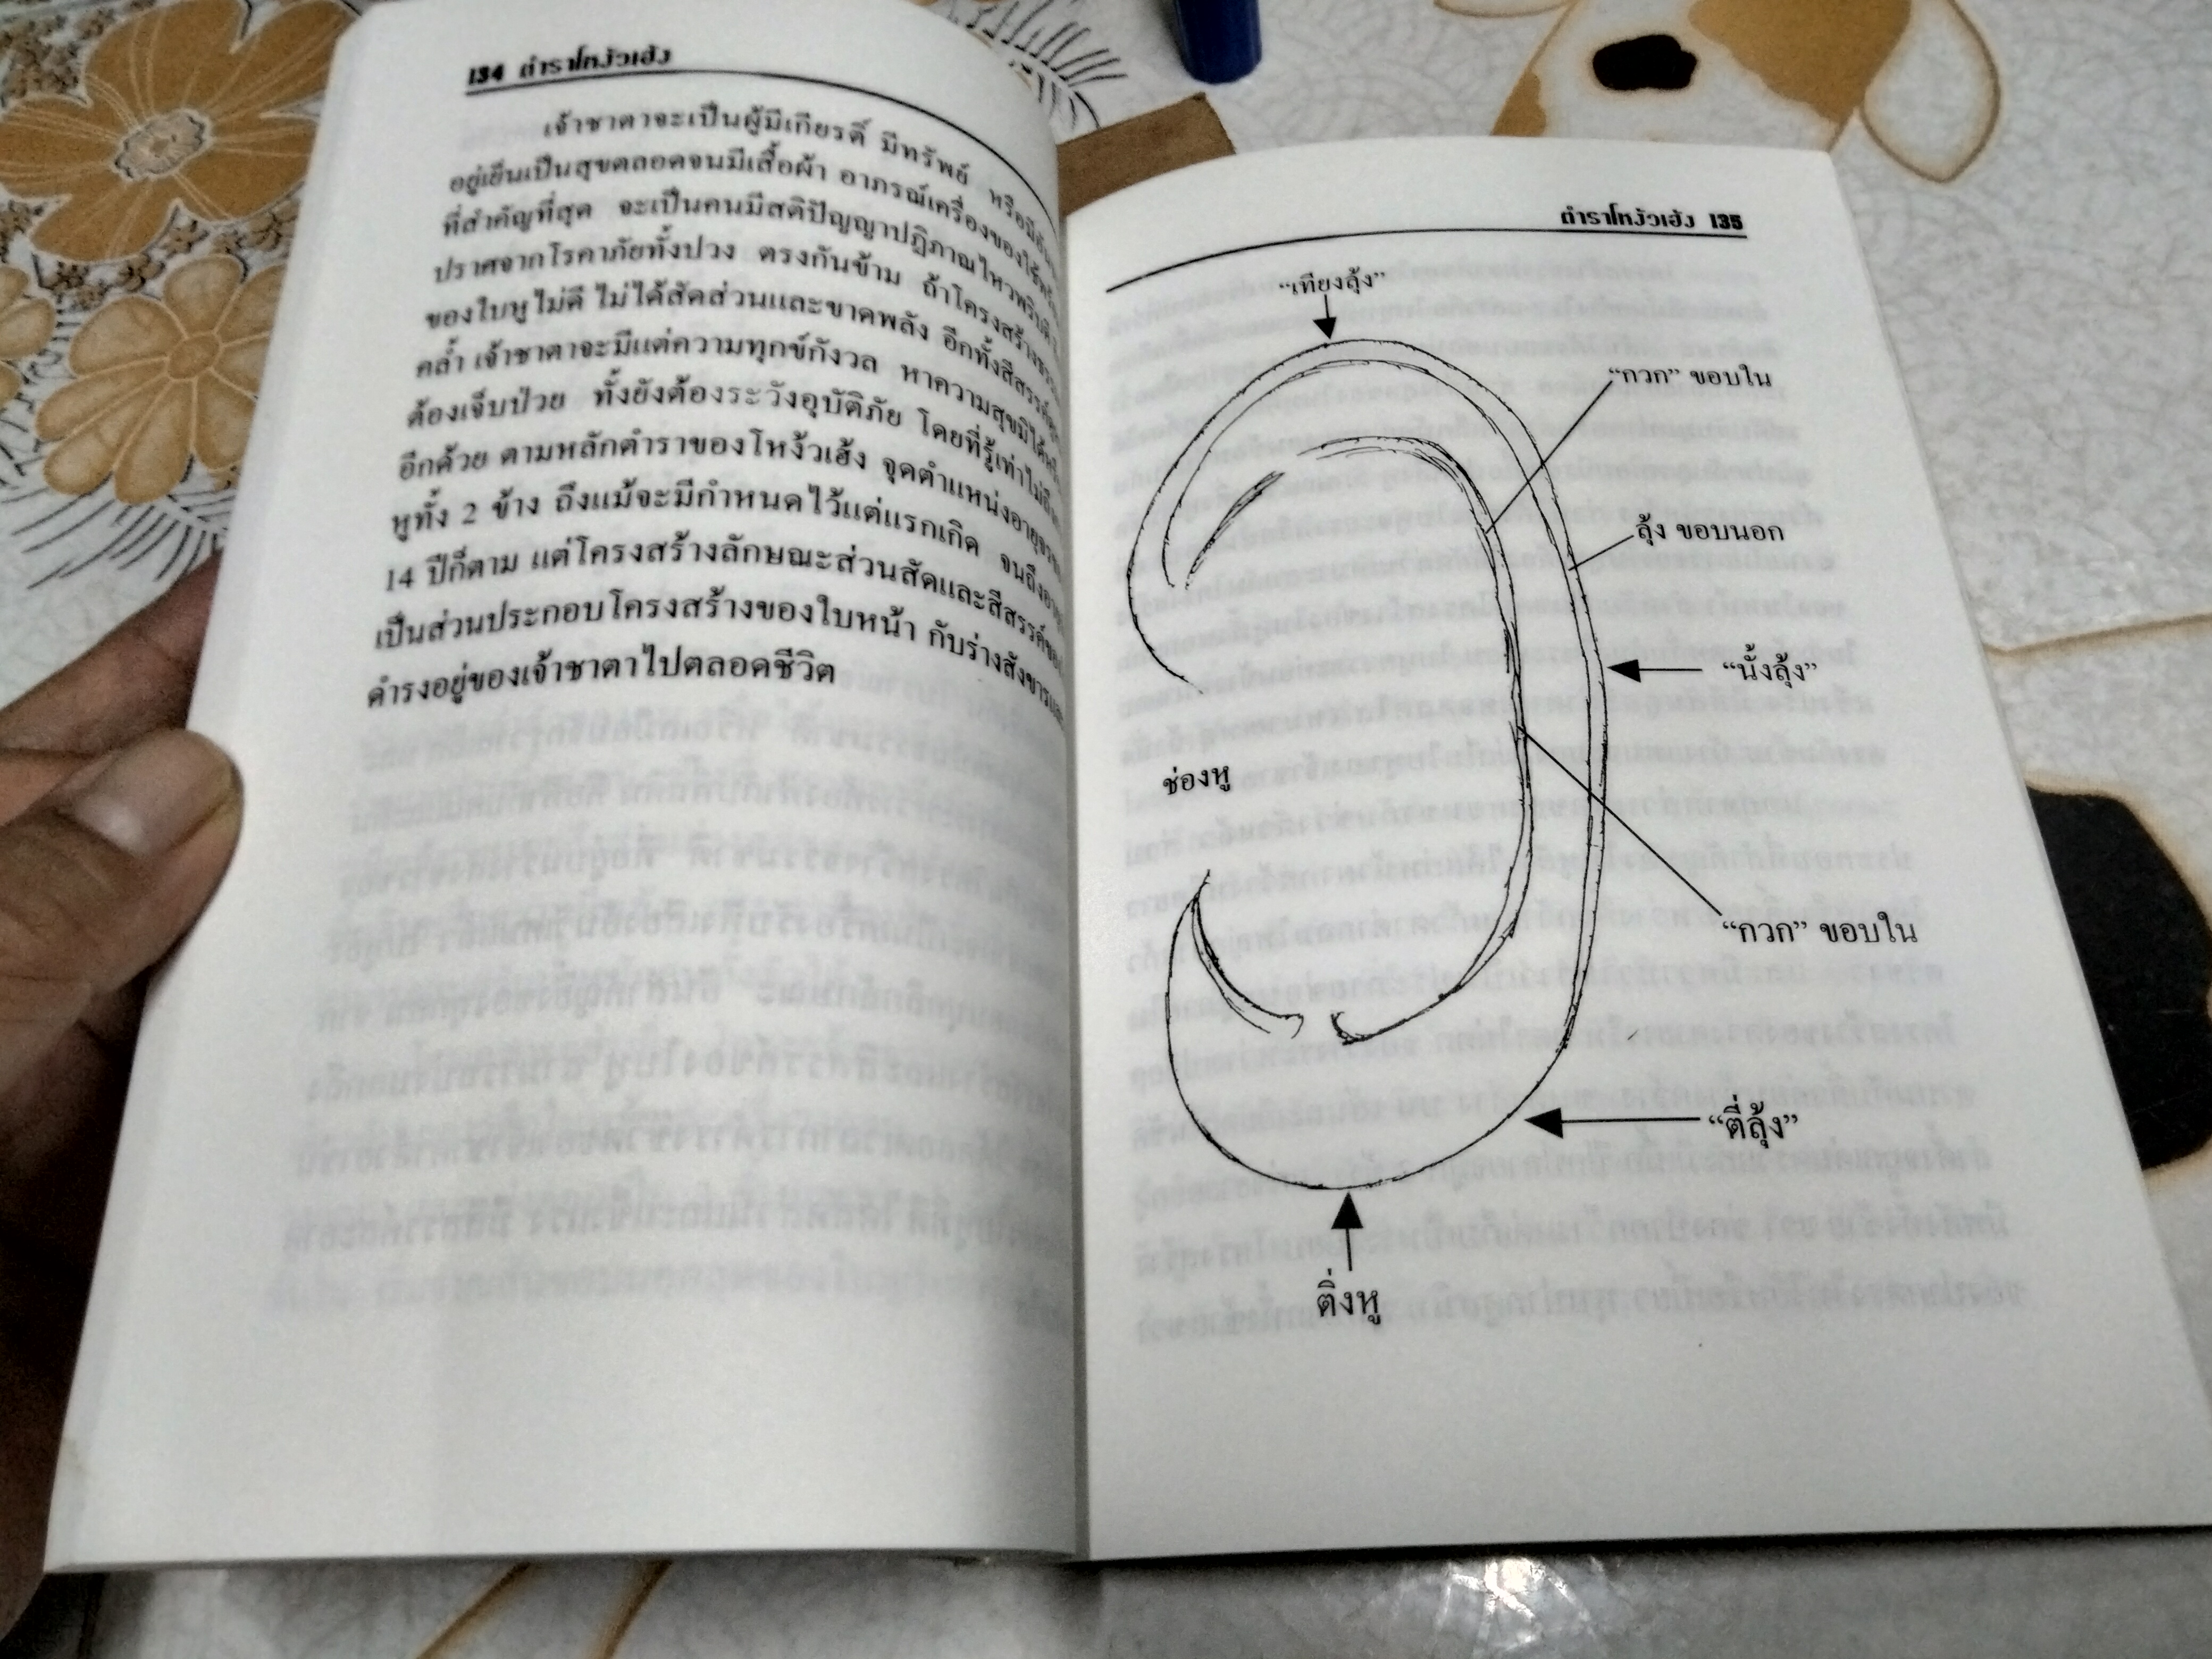 134 ตำราโหงวเฮ้ง
เจ้าชาตาจะเป็นผู้มีเกียรติ์ มีทรัพย์ หรือมี
อยู่เย็นเป็นสุขตลอดจนมีเสื้อผ้า อาภรณ์เครื่องของใช้
ที่สำคัญที่สุด จะเป็นคนมีสติปัญญาปฏิภาณไหวพริบ
ปราศจากโรคาภัยทั้งปวง ตรงกันข้าม ถ้าโครงสร้าง
ของใบหูไม่ดี ไม่ได้สัดส่วนและขาดพลัง อีกทั้งสีสรรค์
คล้ำ เจ้าชาตาจะมีแต่ความทุกข์กังวล หาความสุขมิได้
ต้องเจ็บป่วย ทั้งยังต้องระวังอุบัติภัย โดยที่รู้เท่าไม่ถึง
อีกด้วย ตามหลักตำราของโหงวเฮ้ง จุดตำแหน่งอายุ
หูทั้ง 2 ข้าง ถึงแม้จะมีกำหนดไว้แต่แรกเกิด จนถึง
14 ปีก็ตาม แต่โครงสร้างลักษณะส่วนสัดและสีสรรค์
เป็นส่วนประกอบโครงสร้างของใบหน้า กับร่างสังขาร
ดำรงอยู่ของเจ้าชาตาไปตลอดชีวิต
ตำราโหงวเฮ้ง 135
“เทียงลุ้ง”
“กวก” ขอบใน
ลุ้ง ขอบนอก
“นั้งลุ้ง”
ช่องหู
“กวก” ขอบใน
“ตี่ลุ้ง”
ติ่งหู